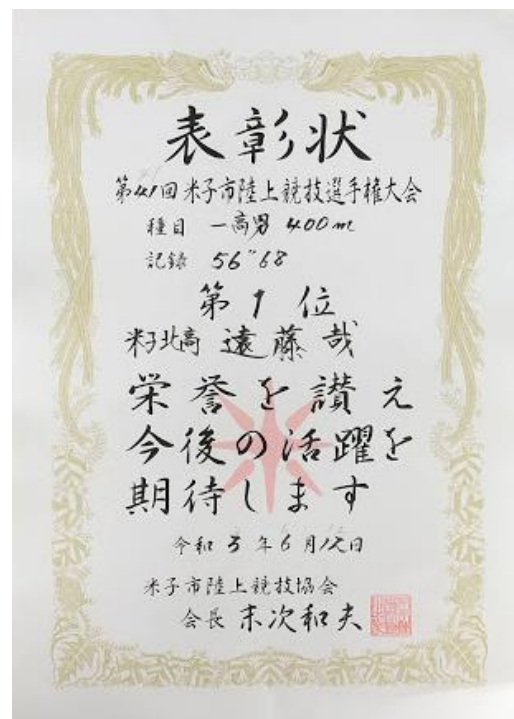 表彰状
第41回米子市陸上競技選手権大会
種目 一高男 400m
記録 56"68
第1位
米子北高 遠藤 哉
栄誉を讃え
今後の活躍を
期待します
令和3年6月12日
米子市陸上競技協会
会長 末次和夫